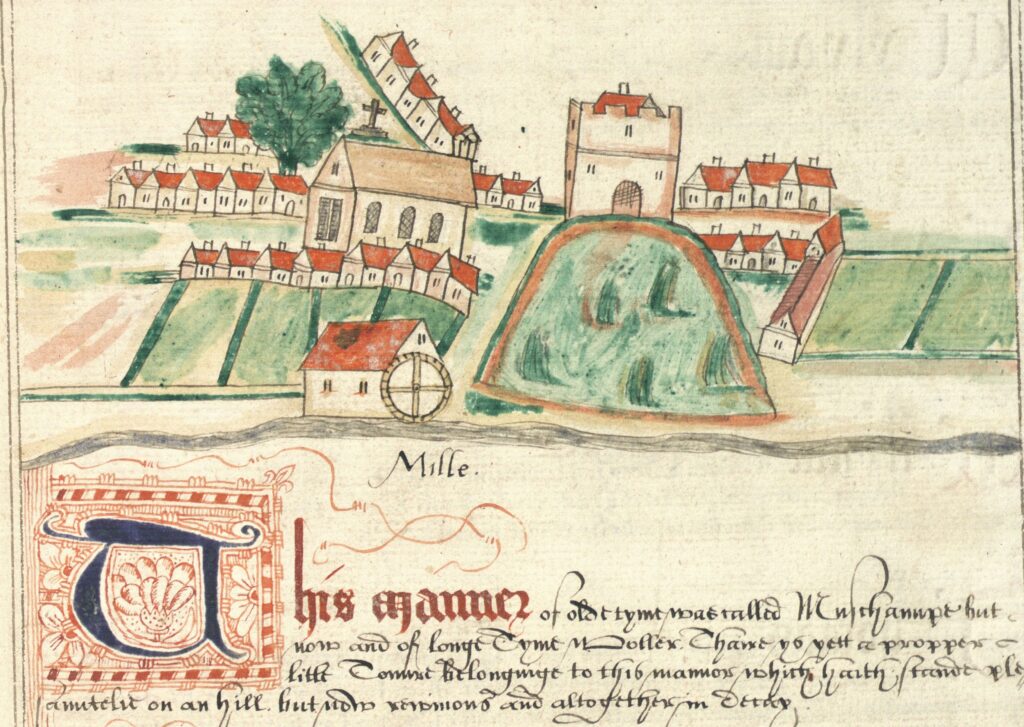 Mille.
This Manner of olde tyme was called Muschampe but
now and of longe Tyme Woller. Thaire ys yett a propper
litle Towre belonginge to this mannor which haith stande ple
asuntelie on an hill. but now rewinous and altogether in decay